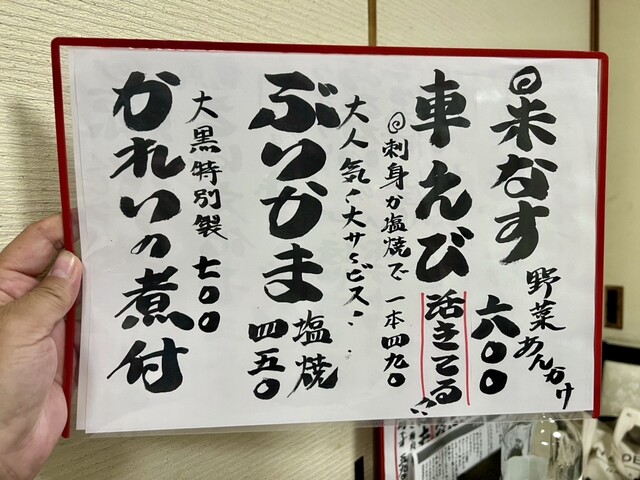 ◎米なす
野菜あんかけ
六〇〇
車えび
活きてる!!
◎刺身か塩焼で 一本四九〇
大人気!大サービス!
ぶりかま
塩焼
四五〇
大黒特別製 七〇〇
かれいの煮付